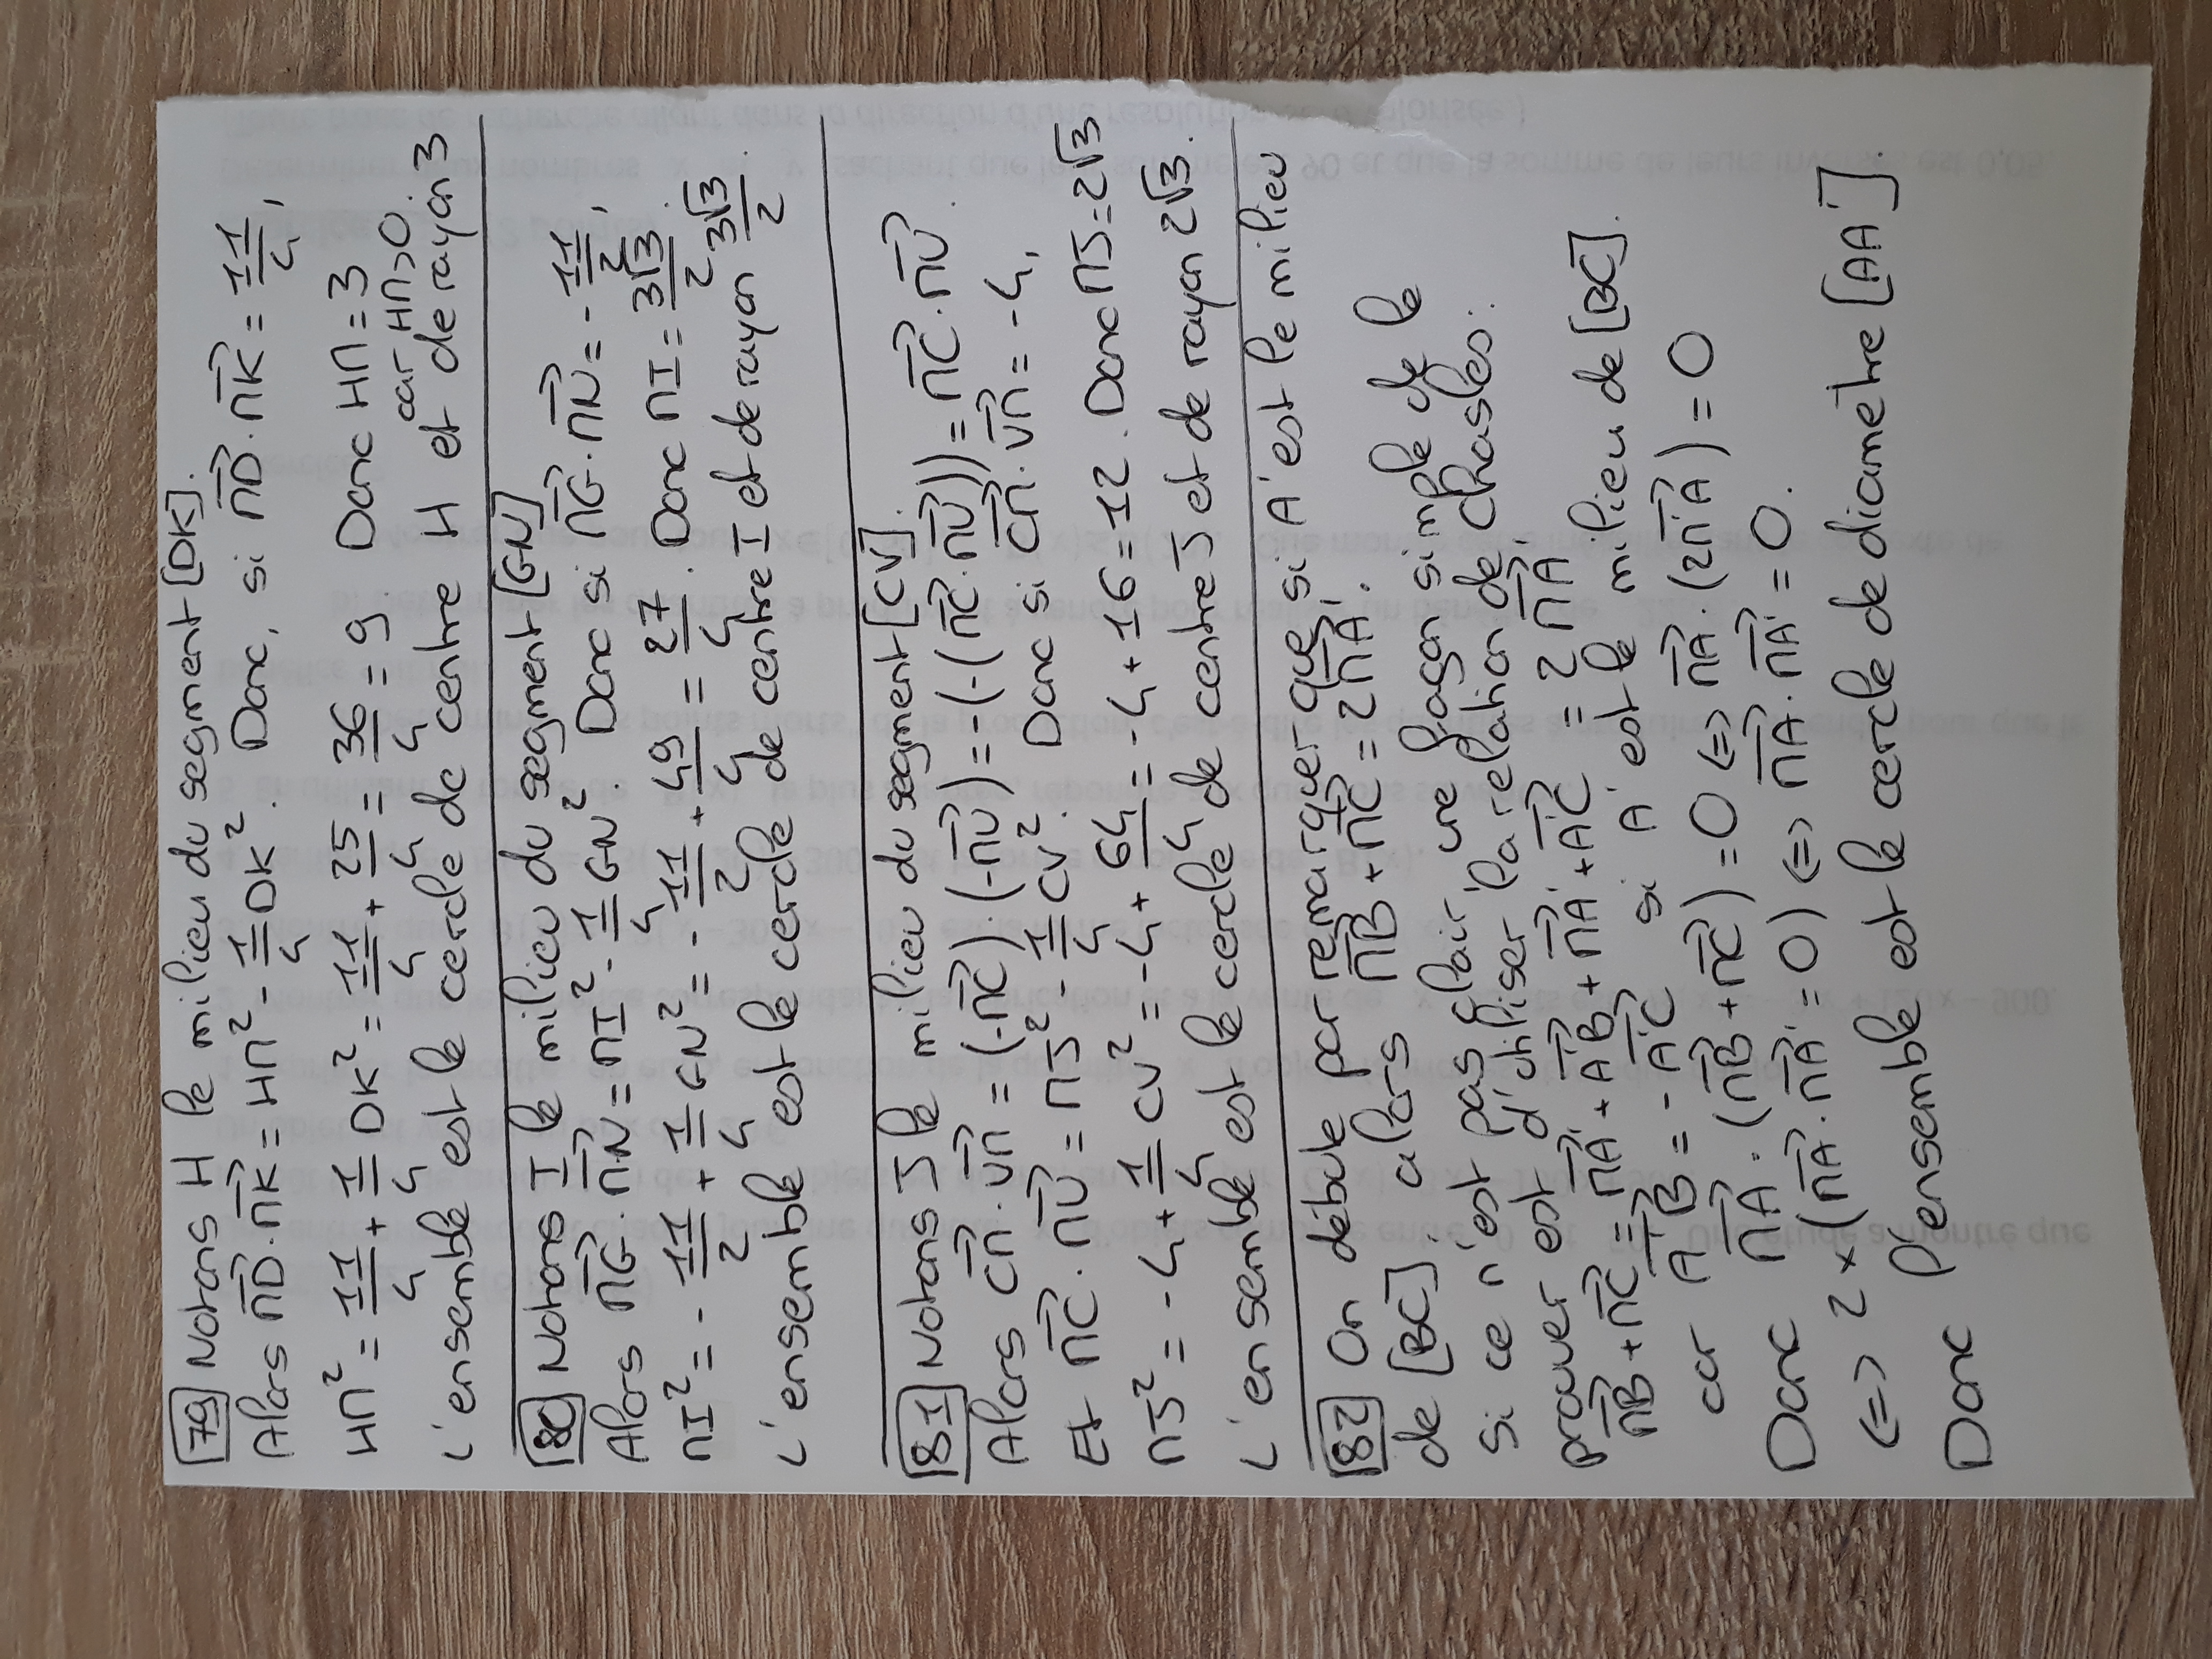 79 Notons H le milieu du segment [DK].
Alors \vec{MD}·\vec{MK} = HM² - 1/4 DK². Donc, si \vec{MD}·\vec{MK} = 11/4,
HM² = 11/4 + 1/4 DK² = 11/4 + 25/4 = 36/4 = 9. Donc HM = 3
car HM>0.
L'ensemble est le cercle de centre H et de rayon 3
80 Notons I le milieu du segment [GN]
Alors \vec{MG}·\vec{MN} = MI² - 1/4 GN². Donc si \vec{MG}·\vec{MN} = - 11/2,
MI² = - 11/2 + 1/4 GN² = - 11/2 + 49/4 = 27/4. Donc MI = 3√3/2.
L'ensemble est le cercle de centre I et de rayon 3√3/2.
81 Notons J le milieu du segment [CV].
Alors \vec{CM}·\vec{UM} = (-\vec{MC})·(-\vec{MU}) = -(-(\vec{MC}·\vec{MU})) = \vec{MC}·\vec{MU}.
Et \vec{MC}·\vec{MU} = MJ² - 1/4 CV². Donc si \vec{CM}·\vec{UM} = -4,
MJ² = -4 + 1/4 CV² = -4 + 64/4 = -4 + 16 = 12. Donc MJ = 2√3
L'ensemble est le cercle de centre J et de rayon 2√3.
82 On débute par remarquer que si A' est le milieu
de [BC], alors \vec{MB} + \vec{MC} = 2\vec{MA'}.
Si ce n'est pas clair, une façon simple de le
prouver est d'utiliser la relation de Chasles :
\vec{MB} + \vec{MC} = \vec{MA'} + \vec{A'B} + \vec{MA'} + \vec{A'C} = 2\vec{MA'}
car \vec{A'B} = -\vec{A'C} si A' est le milieu de [BC].
Donc \vec{MA}·(\vec{MB} + \vec{MC}) = 0 <=> \vec{MA}·(2\vec{M'A}) = 0
<=> 2×(\vec{MA}·\vec{MA'} = 0) <=> \vec{MA}·\vec{MA'} = 0.
Donc l'ensemble est le cercle de diamètre [AA'].